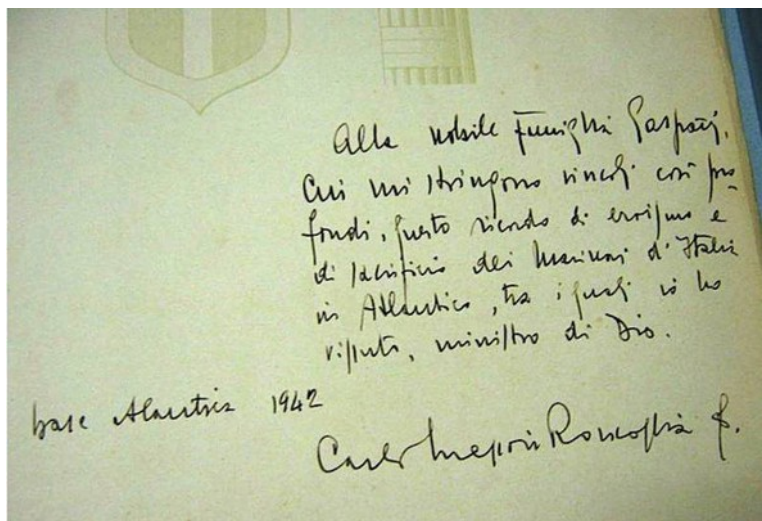 Alla nobile famiglia Gasparj,
cui mi stringono vincoli così pro
fondi, questo ricordo di eroismo e
di sacrificio dei Marinai d'Italia
in Atlantico, tra i quali io ho
vissuto, ministro di Dio.
base Atlantica 1942
Carlo Roncaglia